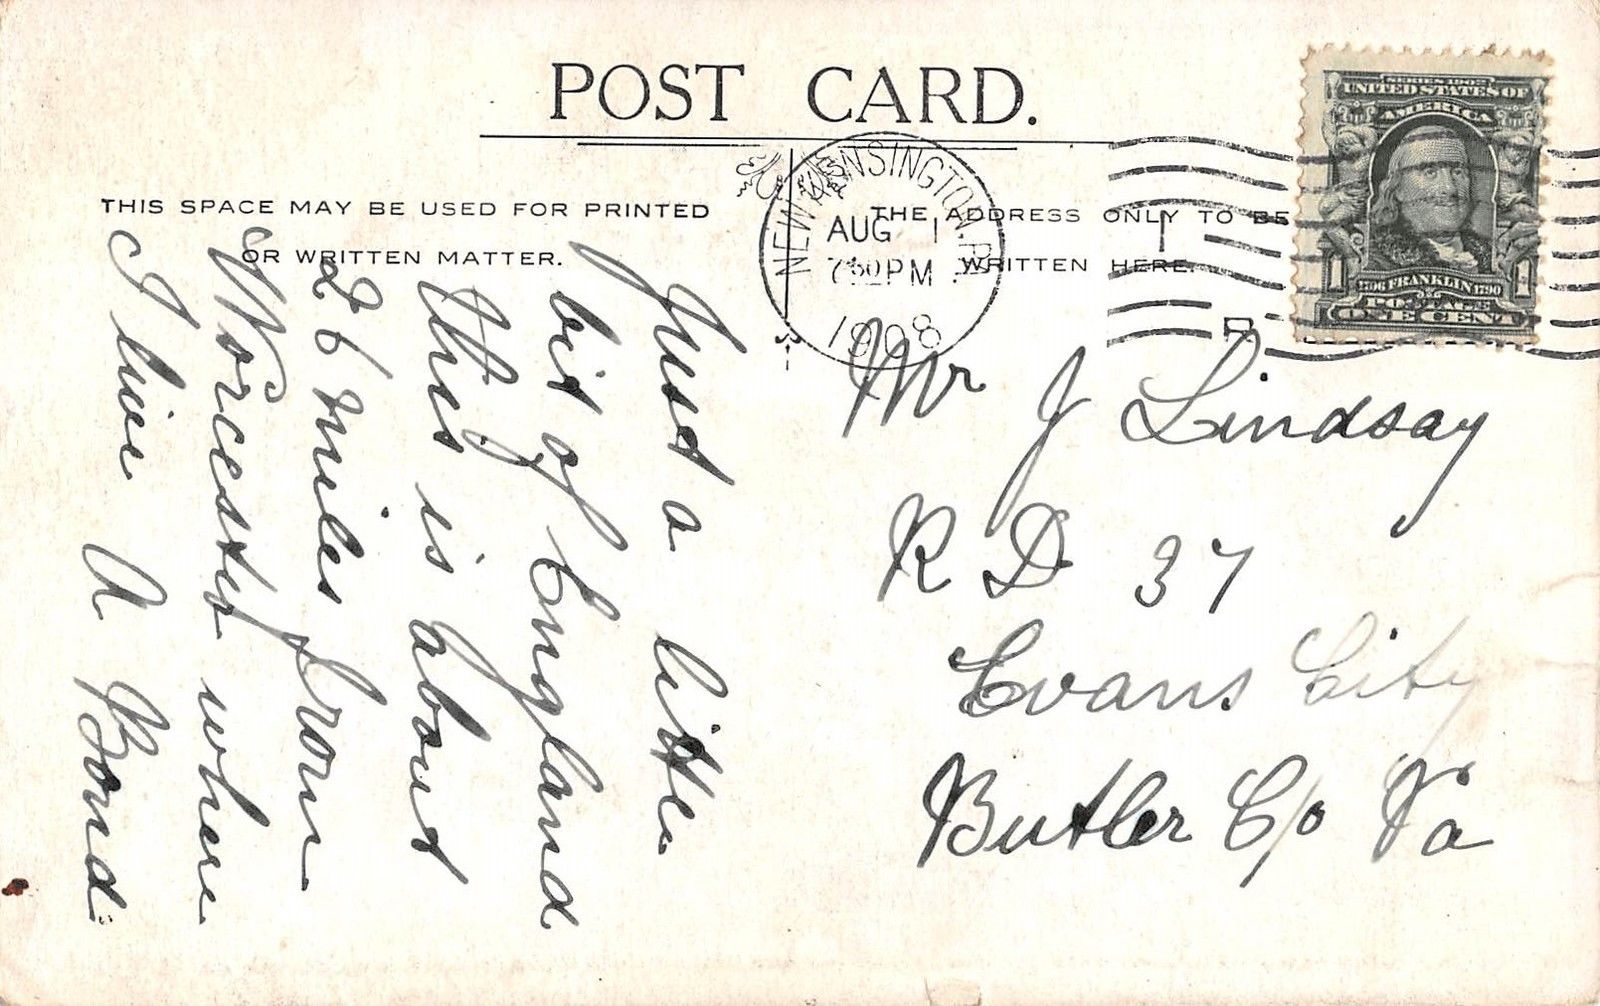 POST CARD.
THIS SPACE MAY BE USED FOR PRINTED
OR WRITTEN MATTER.
THE ADDRESS ONLY TO BE
WRITTEN HERE.
NEW KENSINGTON, PA.
AUG 1
7 30 PM
1908
SERIES 1902
UNITED STATES OF
AMERICA
1706 FRANKLIN 1790
POSTAGE
1 1
ONE CENT
Just a little
bit of England
this is about
26 miles from
Worcester where
I live A Bond
Mr J Lindsay
R D 37
Evans City
Butler C/o Pa